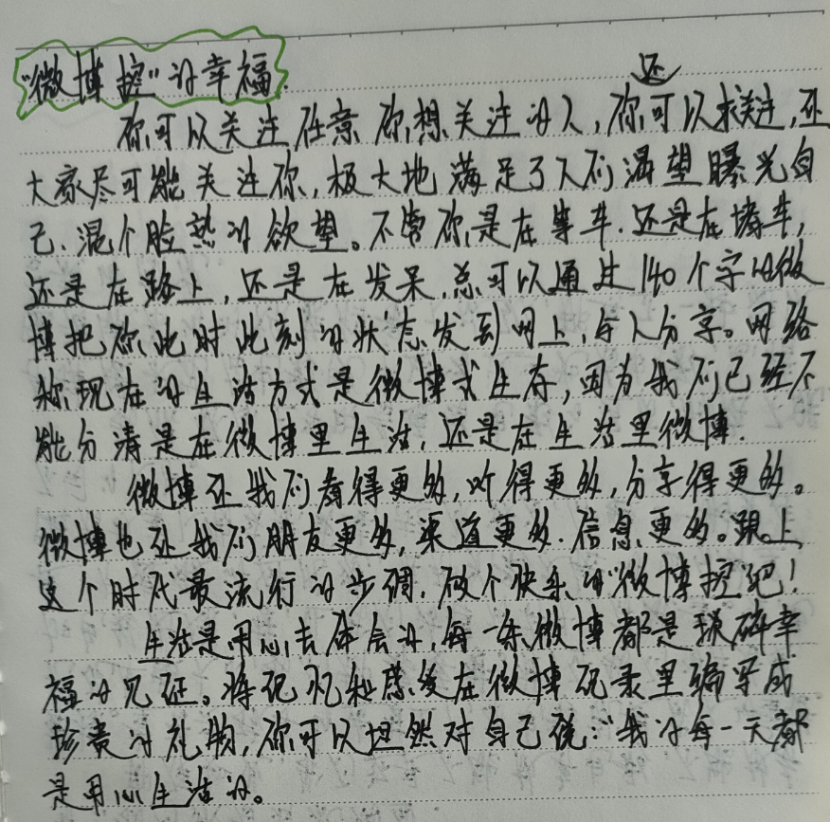 "微博控"的幸福.
还
你可以关注任意你想关注的人,你可以求关注,让
大家尽可能关注你,极大地满足了人们渴望曝光自
己.混个脸熟的欲望。不管你是在等车.还是在堵车,
还是在路上,还是在发呆,总可以通过140个字的微
博把你此时此刻的状态发到网上,与人分享。网络
称现在的生活方式是微博式生存,因为我们已经不
能分清是在微博里生活,还是在生活里微博.
微博让我们看得更多,听得更多,分享得更多。
微博也让我们朋友更多,渠道更多.信息更多。跟上
这个时代最流行的步调.做个快乐的"微博控"吧!
生活是用心去体会的,每一条微博都是琐碎幸
福的见证。将记忆和感受在微博记录里编写成
珍贵的礼物,你可以坦然对自己说:"我的每一天都
是用心生活的。